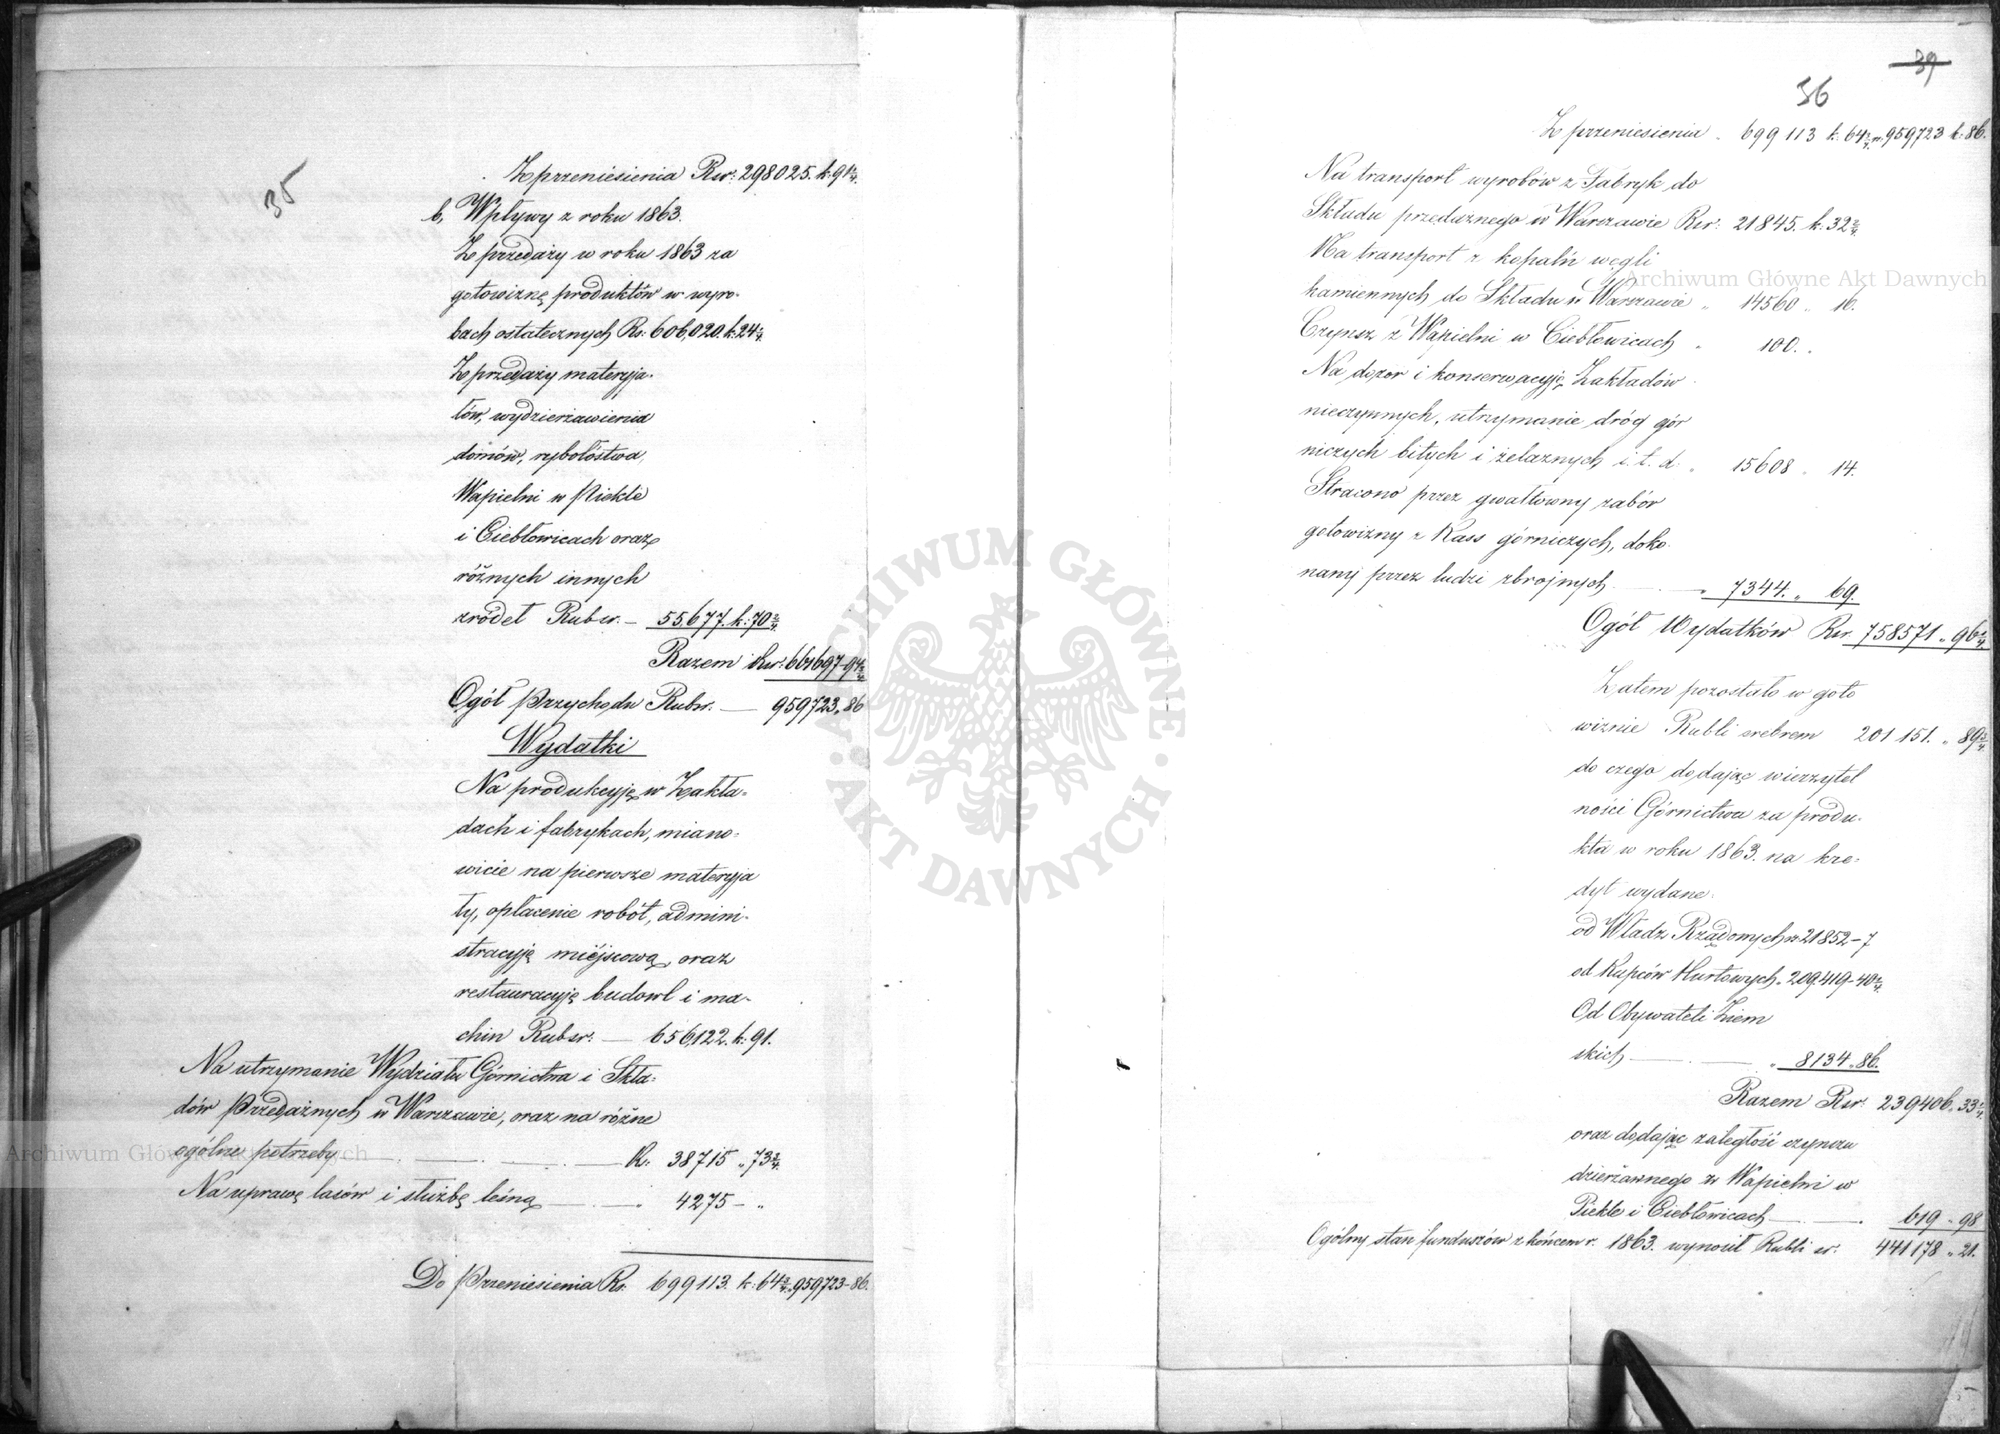 35
Z przeniesienia Rsr: 298025. k: 91 2/4.
b, Wpływy z roku 1863.
Ze przedaży w roku 1863 za
gotowiznę produktów w wyro-
bach ostatecznych Rs: 606,020. k: 24 1/4
Ze przedaży materyja-
łów, wydzierżawienia
domów, rybołóstwa,
Wapielni w Piekle
i Ciebłowicach oraz
różnych innych
źródeł Rubsr. — 55,677. k: 70 2/4
Razem Rsr: 661697-94 3/4
Ogół Przychodu Rubsr. — 959723 „ 86
Wydatki
Na produkcyję w Zakła-
dach i fabrykach, miano-
wicie na pierwsze materyja
ły, opłacenie robót, admini-
stracyję miejscową, oraz
restauracyję budowl i ma-
chin Rubsr: — 656,122. k: 91.
Na utrzymanie Wydziału Górnictwa i Skła-
dów Przedażnych w Warszawie, oraz na różne
ogólne potrzeby — R. 38715 „ 73 3/4.
Na uprawę lasów i służbę leśną — 4275 – „
Do Przeniesienia Rs. 699113. k: 64 3/4 „ 959723-86.
39
36
Z przeniesienia . 699113 k: 64 3/4 „ 959723 k: 86.
Na transport wyrobów z Fabryk do
Składu przedażnego w Warszawie Rsr: 21845. k: 32 2/4.
Na transport z kopalń węgli
kamiennych do Składu w Warszawie „ 14560 „ 16.
Czynsz z Wapielni w Ciebłowicach „ 100. „
Na dozor i konserwacyję Zakładów
nieczynnych, utrzymanie dróg gór
niczych bitych i żelaznych i. t. d. „ 15608 „ 14.
Stracono przez gwałtowny zabór
gotowizny z Kass górniczych, doko-
nany przez ludzi zbrojnych — „ 7344. „ 69.
Ogół Wydatków Rsr. 758571 „ 96 1/4
Zatem pozostało w goto
wiznie Rubli srebrem 201151. „ 89 3/4
do czego dodając wierzytel
ności Górnictwa za produ-
kta w roku 1863. na kre-
dyt wydane.
od Władz Rządowych rs 21852-7
od Kupców Hurtowych „ 209,419-40 2/4.
Od Obywateli Ziem
skich — „ 8134 „ 86.
Razem Rsr. 239406 „ 33 2/4
oraz dodając zaległość czynszu
dzierżawnego z Wapielni w
Piekle i Ciebłowicach — 619 „ 98
Ogólny stan funduszów z końcem r. 1863. wynosił Rubli sr. 441178 „ 21.
Archiwum Główne Akt Dawnych
Archiwum Główne Akt Dawnych
ARCHIWUM GŁÓWNE AKT DAWNYCH